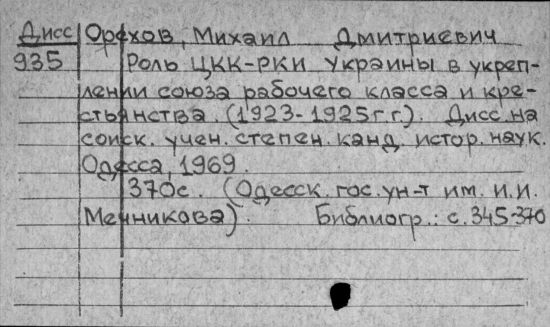 Дисс Орехов, Михаил Дмитриевич
935 Роль ЦКК-РКИ Украины в укреп-
лении союза рабочего класса и кре-
стьянства. (1923-1925г.г.). Дисс. на
соиск. учен. степен. канд. истор. наук.
Одесса, 1969.
370с. (Одесск. гос. ун-т им. И.И.
Мечникова). Библиогр.: с. 345-370